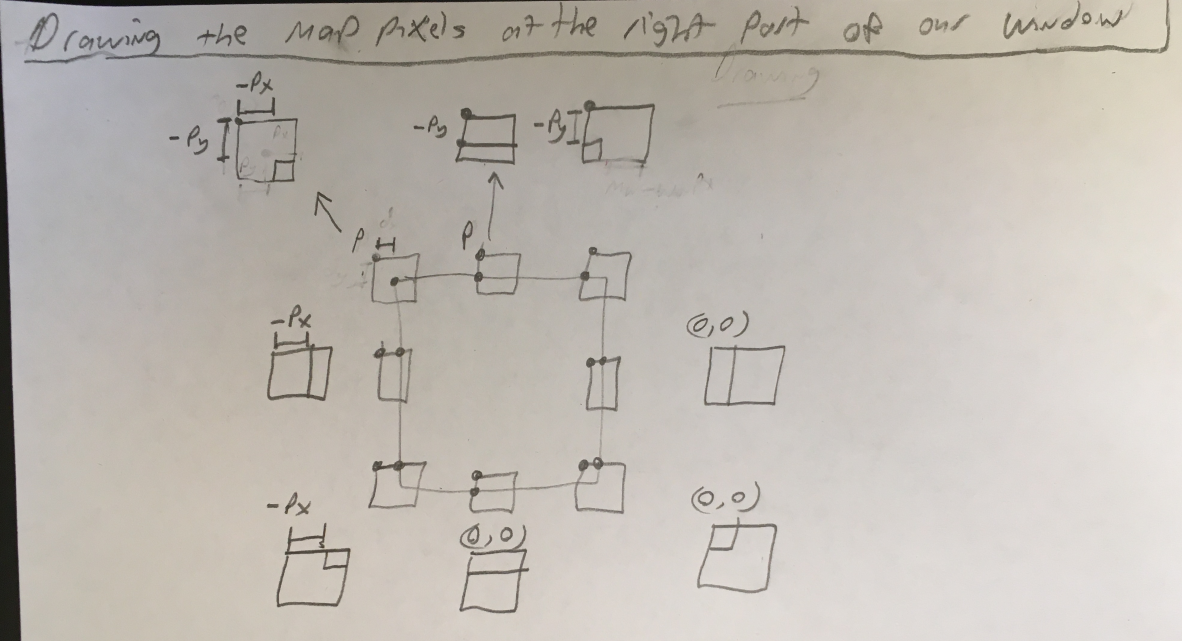 Drawing the Map pixels at the right part of our window
Drawing
-Px
-Py
-Py
-Py
P
P
-Px
(0,0)
-Px
(0,0)
(0,0)